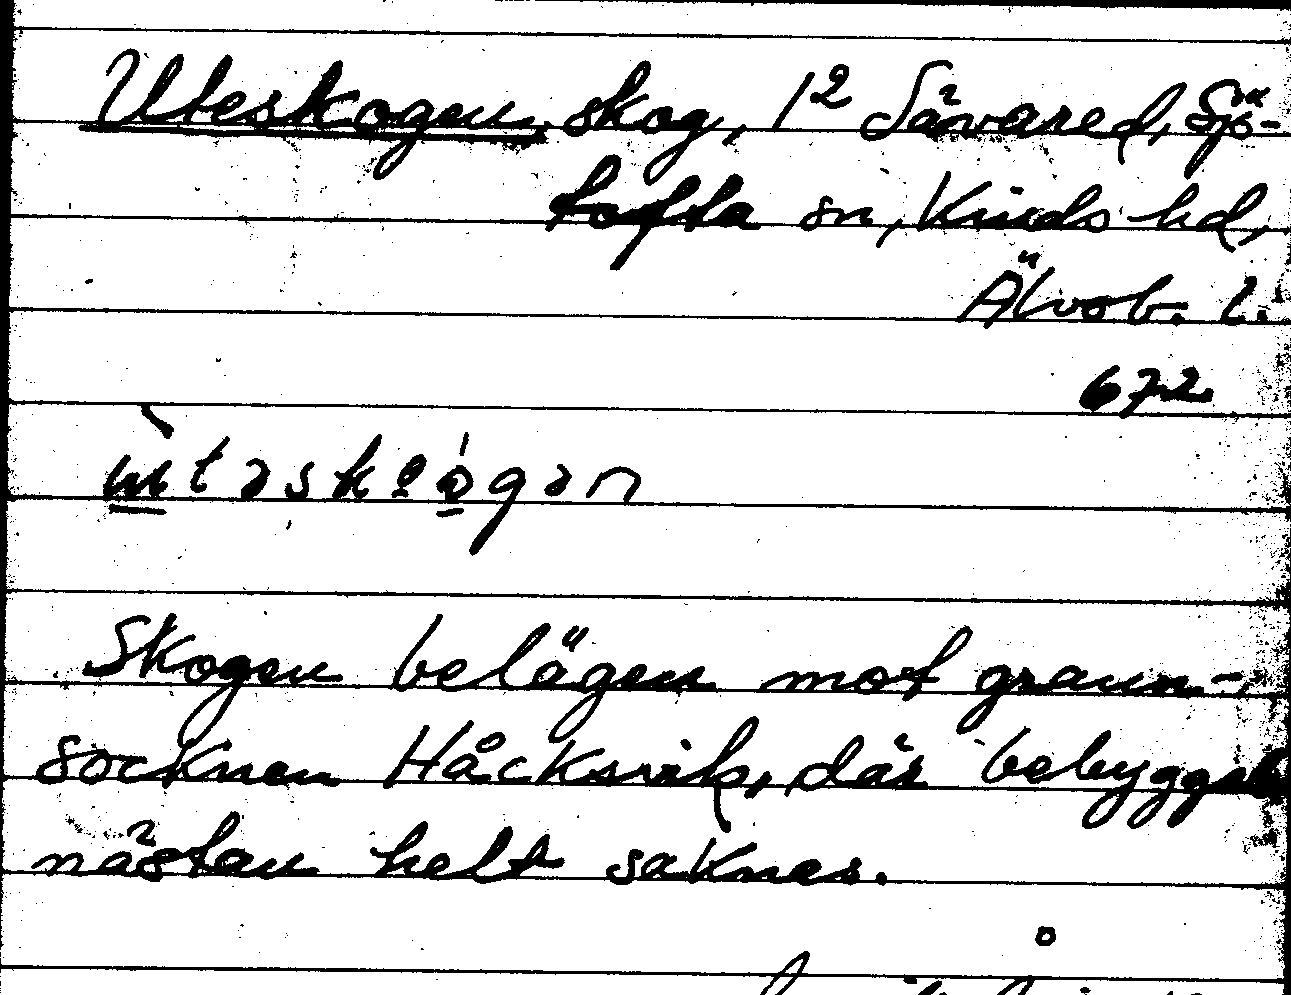 Uteskogen, skog, 1² Sävared, Sjö-
tofta sn, Kinds hd,
Älvsb. l.
672
Skogen belägen mot grann-
socknen Håcksvik, där bebyggels
nästan helt saknas.